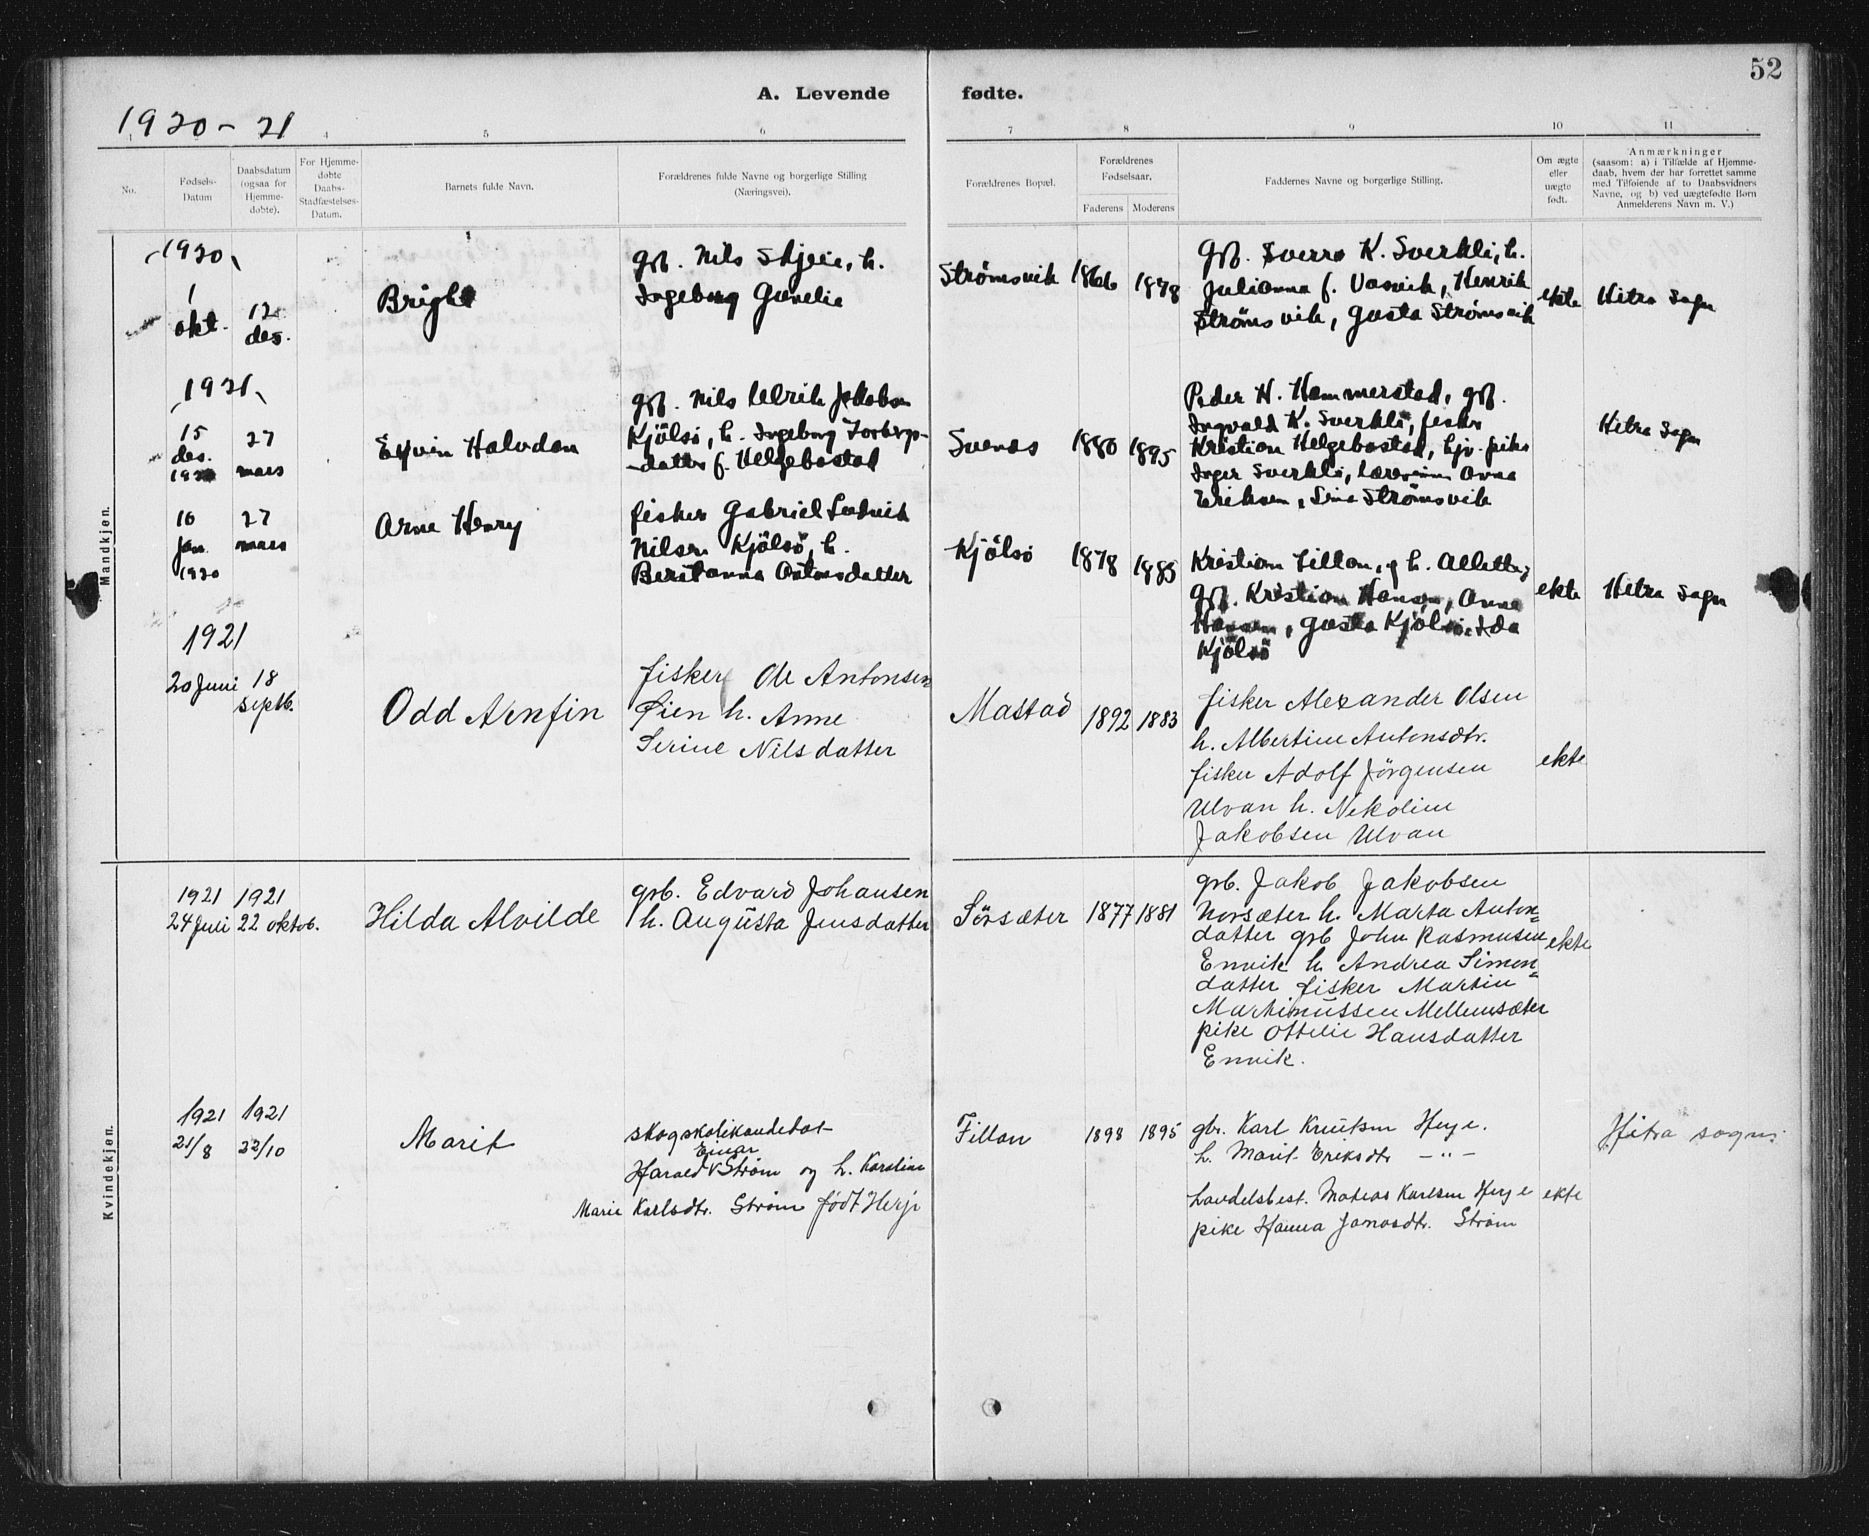 52
A. Levende fødte.
1920-21
1 4 5 6 7 8 9 10 11
No.
Fødsels-
Datum
Daabsdatum
(ogsaa for
Hjemme-
døbte).
For Hjemme-
døbte
Daabs-
Stadfæstelses-
Datum.
Barnets fulde Navn.
Forældrenes fulde Navne og borgerlige Stilling
(Næringsvei).
Forældrenes Bopæl.
Forældrenes
Fødselsaar.
Faderens Moderens
Faddernes Navne og borgerlige Stilling.
Om ægte
eller
uægte
født.
Anmærkninger
(saasom: a) i Tilfælde af Hjemme-
daab, hvem der har forrettet samme
med Tilføiende af to Daabsvidners
Navne, og b) ved uægtefødte Børn
Anmelderens Navn m. V.)
Mandkjøn.
1920
1
okt.
12
des.
grb. Nils Skjeie, h.
Ingeborg
Strömsvik 1866 1878
grb. Sverre K. Sverkli, h.
Julianna f. Vasvik, Henrik
Strömsvik, Gusta Strömsvik
ekte
Hitra Sogn
1921
15
des.
27
mars
Halvdan
grb. Nils Ulrik Jakobsen
Kjölsö, h. Ingeborg
-datter f. Helgebostad
Svenås 1880 1895
Peder H. Hammerstad, grb.
Ingvald K. Sverkli, fisker
Kristian Helgebostad, hjv. pike
Inger Sverkli, lærerinne Anna
Eriksen, Lina Strömsvik
Hitra Sogn
16
jan.
1920
27
mars
Arne Henry
fisker Gabriel Ludvik
Nilsen Kjölsö, h.
Berit Anna
Kjölsö 1878 1885
Kristian Fillan, og h. Allette,
grb. Kristian Hansen, Anna
Hansen, Gusta Kjölsö, Ida
Kjölsö
ekte
Hitra Sogn
1921
20 Juni
18
septb.
Odd Arnfin
fisker Ole Antonsen
Øien h. Anne
Serine Nilsdatter
Mastad 1892 1883
fisker Alexander Olsen
h. Albertine Antonsdtr.
fisker Adolf Jörgensen
Ulvan h. Nikoline
Jakobsen Ulvan
ekte
Kvindekjøn.
1921
24 Juli
1921
22 oktob.
Hilda Alvilde
grb. Edvard Johansen
h. Augusta Jensdatter
Sörsæter 1877 1881
grb. Jakob Jakobsen
Norsæter h. Marta Anton=
datter grb John Rasmusen
Envik h. Andrea Simon=
datter fisker Martin
Martinussen Mellemsæter
pike Ottelie Hansdatter
Envik.
ekte
1921
21/8
1921
/10
Marit
skogskolikandidat
Einar
Harald v Strøm og h. Karoline
Marie Karlsdtr. Strøm født Herje
Fillan 1898 1895
gbr. Karl Knutsen Herje.
h. Marit Eriksdtr - " -
handelsbest. Mateas Karlsen Herje
pike Hanna Jonasdtr. Strøm
ekte
Hitra sogn.